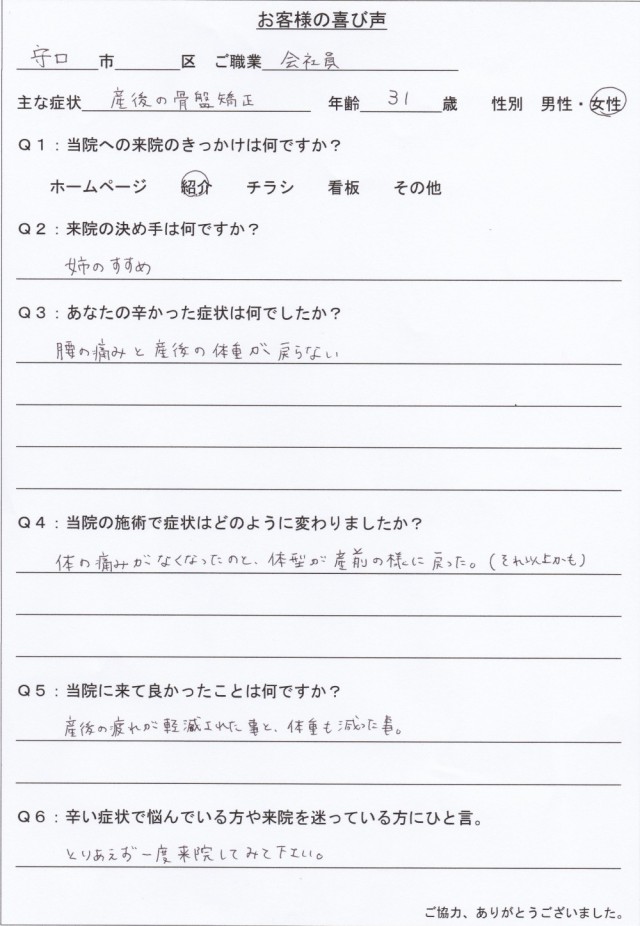 お客様の喜び声
守口市 区 ご職業 会社員
主な症状 産後の骨盤矯正 年齢 31 歳 性別 男性・女性
Q1:当院への来院のきっかけは何ですか?
ホームページ 紹介 チラシ 看板 その他
Q2:来院の決め手は何ですか?
姉のすすめ
Q3:あなたの辛かった症状は何でしたか?
腰の痛みと産後の体重が戻らない
Q4:当院の施術で症状はどのように変わりましたか?
体の痛みがなくなったのと、体型が産前の様に戻った。(それ以上かも)
Q5:当院に来て良かったことは何ですか?
産後の疲れが軽減された事と、体重も減った事。
Q6:辛い症状で悩んでいる方や来院を迷っている方にひと言。
とりあえず一度来院してみて下さい。
ご協力、ありがとうございました。